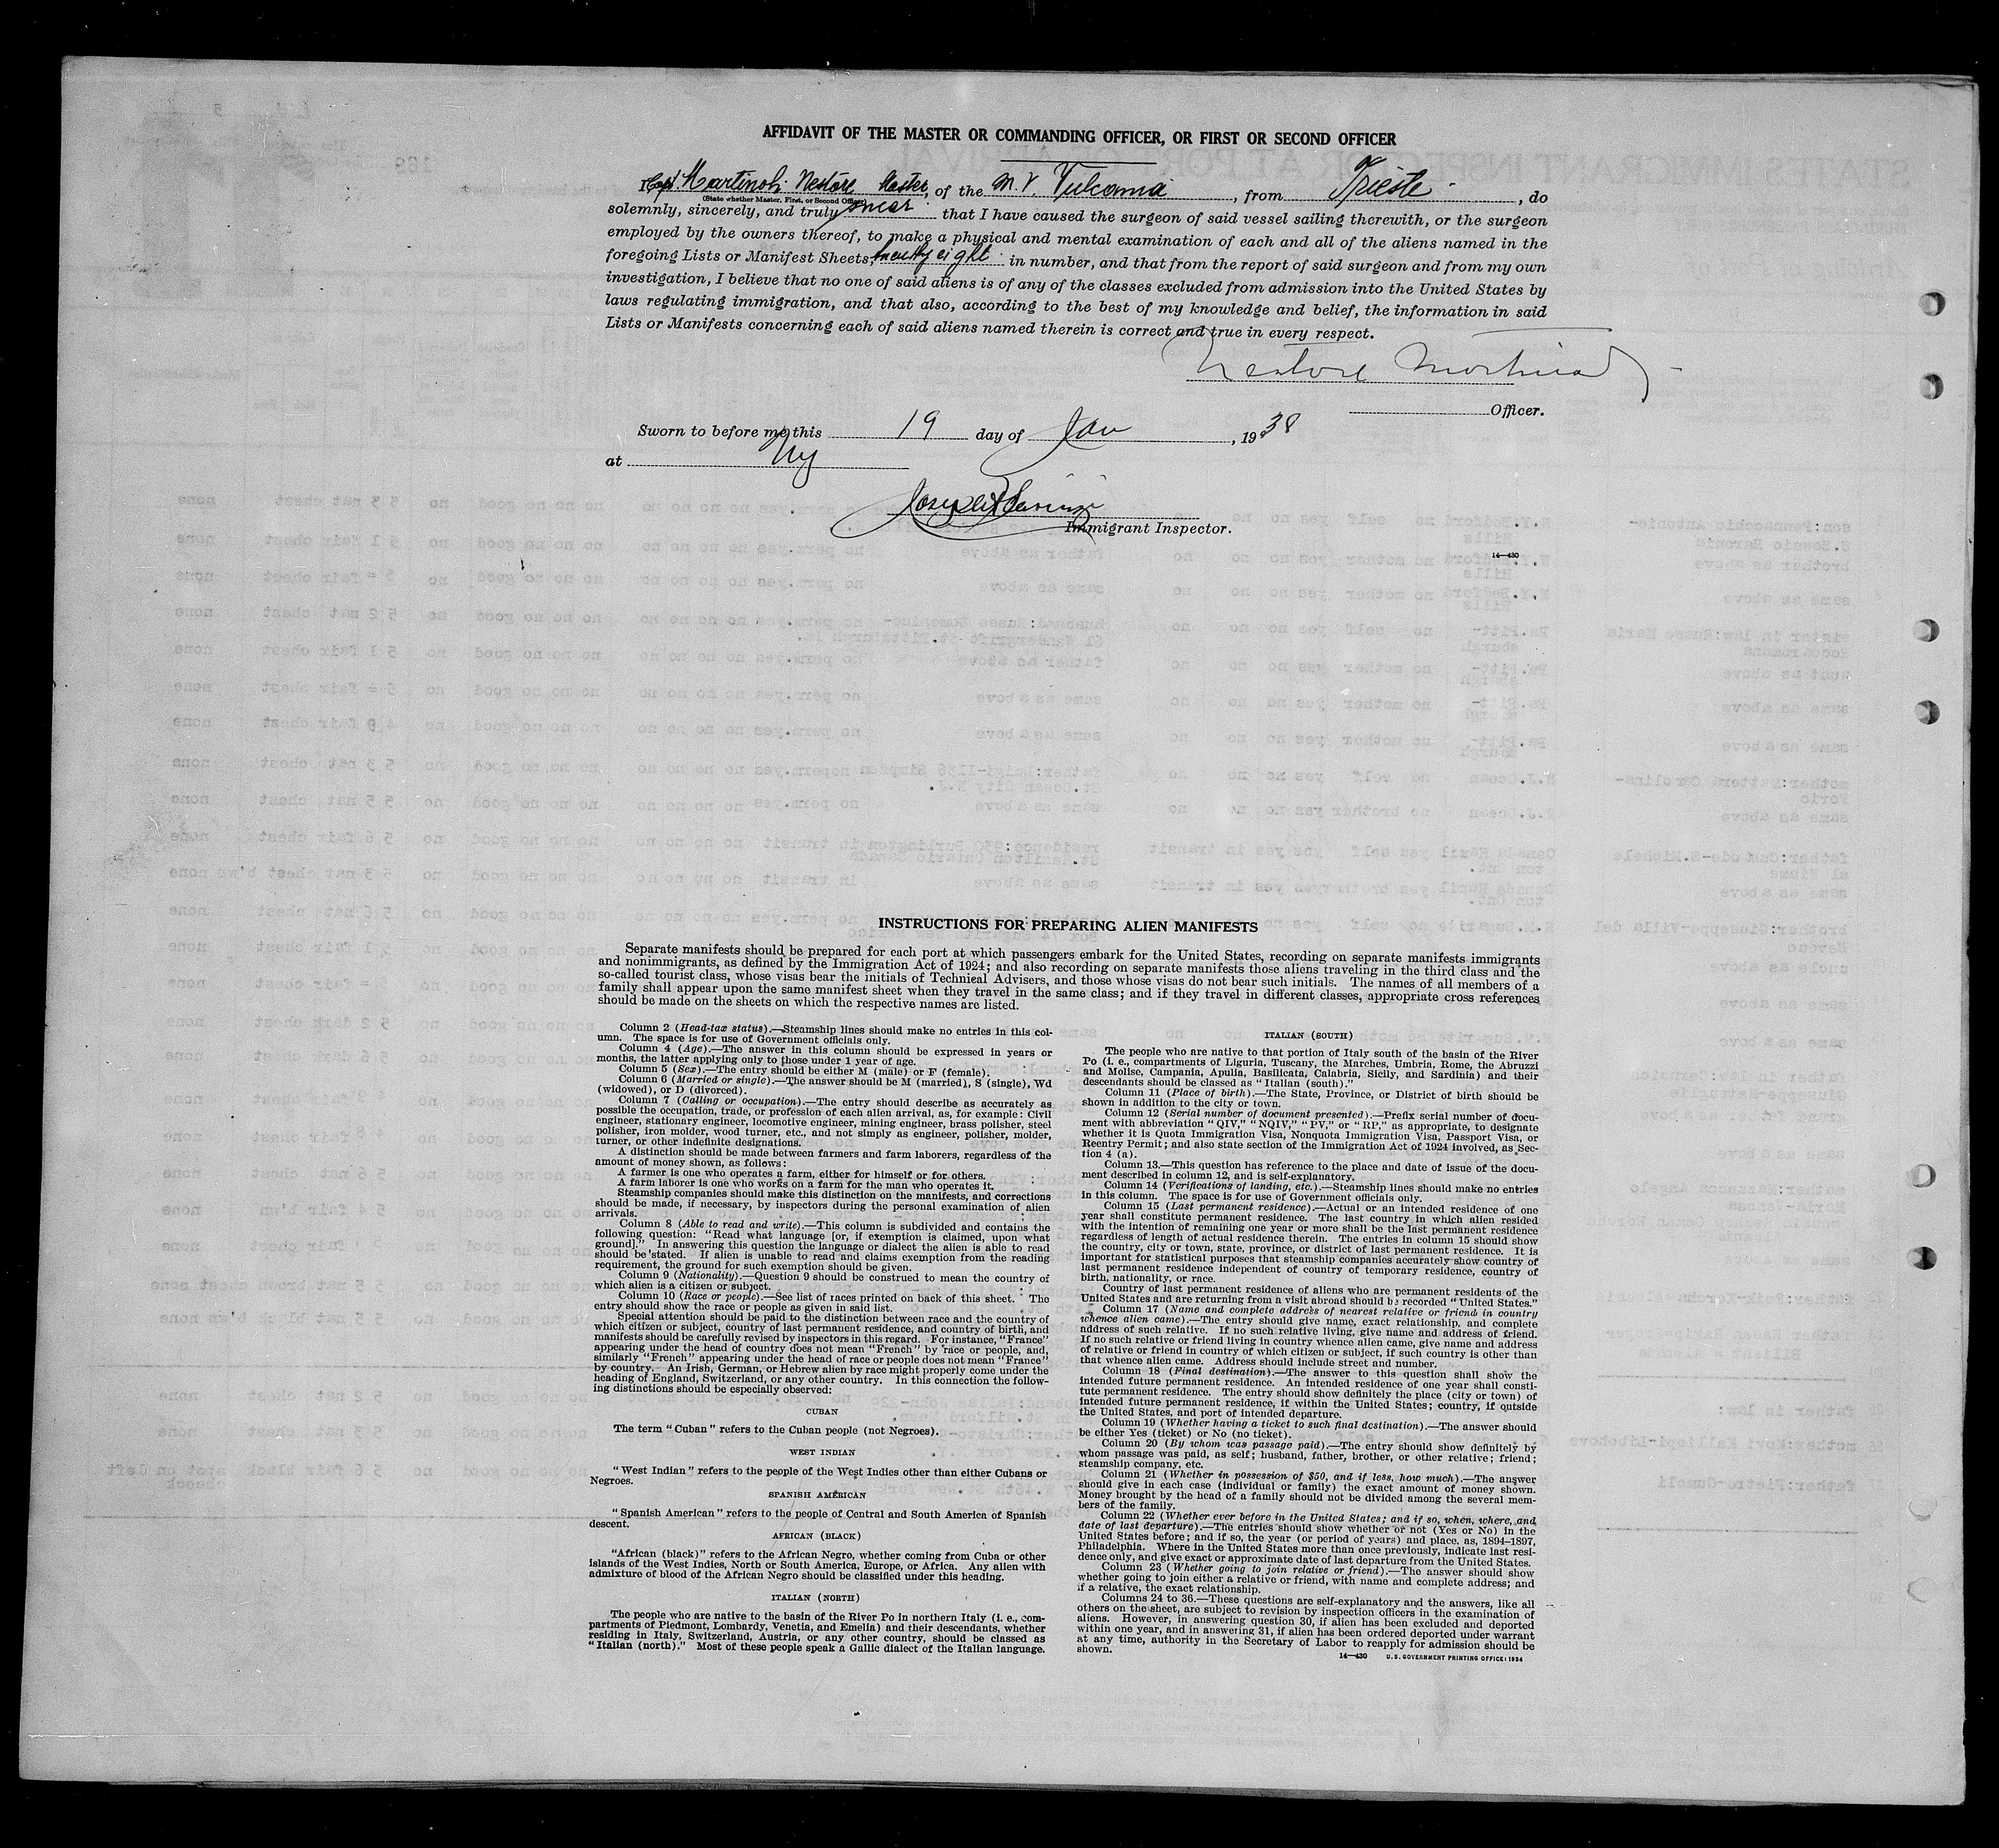 AFFIDAVIT OF THE MASTER OR COMMANDING OFFICER, OR FIRST OR SECOND OFFICER
I Capt Martinoli Nestore Master, of the M.V. Vulcania, from Trieste, do
(State whether Master, First, or Second Officer)
solemnly, sincerely, and truly swear that I have caused the surgeon of said vessel sailing therewith, or the surgeon
employed by the owners thereof, to make a physical and mental examination of each and all of the aliens named in the
foregoing Lists or Manifest Sheets, twenty eight in number, and that from the report of said surgeon and from my own
investigation, I believe that no one of said aliens is of any of the classes excluded from admission into the United States by
laws regulating immigration, and that also, according to the best of my knowledge and belief, the information in said
Lists or Manifests concerning each of said aliens named therein is correct and true in every respect.
Nestore Martinoli
Officer.
Sworn to before me this 19 day of Jan, 1938
at NY
Joseph
Immigrant Inspector.
14—430
INSTRUCTIONS FOR PREPARING ALIEN MANIFESTS
Separate manifests should be prepared for each port at which passengers embark for the United States, recording on separate manifests immigrants
and nonimmigrants, as defined by the Immigration Act of 1924; and also recording on separate manifests those aliens traveling in the third class and the
so-called tourist class, whose visas bear the initials of Technical Advisers, and those whose visas do not bear such initials. The names of all members of a
family shall appear upon the same manifest sheet when they travel in the same class; and if they travel in different classes, appropriate cross references
should be made on the sheets on which the respective names are listed.
Column 2 (Head-tax status).—Steamship lines should make no entries in this col-
umn. The space is for use of Government officials only.
Column 4 (Age).—The answer in this column should be expressed in years or
months, the latter applying only to those under 1 year of age.
Column 5 (Sex).—The entry should be either M (male) or F (female).
Column 6 (Married or single).—The answer should be M (married), S (single), Wd
(widowed), or D (divorced).
Column 7 (Calling or occupation).—The entry should describe as accurately as
possible the occupation, trade, or profession of each alien arrival, as, for example: Civil
engineer, stationary engineer, locomotive engineer, mining engineer, brass polisher, steel
polisher, iron molder, wood turner, etc., and not simply as engineer, polisher, molder,
turner, or other indefinite designations.
A distinction should be made between farmers and farm laborers, regardless of the
amount of money shown, as follows:
A farmer is one who operates a farm, either for himself or for others.
A farm laborer is one who works on a farm for the man who operates it.
Steamship companies should make this distinction on the manifests, and corrections
should be made, if necessary, by inspectors during the personal examination of alien
arrivals.
Column 8 (Able to read and write).—This column is subdivided and contains the
following question: "Read what language [or, if exemption is claimed, upon what
ground]." In answering this question the language or dialect the alien is able to read
should be stated. If alien is unable to read and claims exemption from the reading
requirement, the ground for such exemption should be given.
Column 9 (Nationality).—Question 9 should be construed to mean the country of
which alien is a citizen or subject.
Column 10 (Race or people).—See list of races printed on back of this sheet. The
entry should show the race or people as given in said list.
Special attention should be paid to the distinction between race and the country of
which citizen or subject, country of last permanent residence, and country of birth, and
manifests should be carefully revised by inspectors in this regard. For instance, "France"
appearing under the head of country does not mean "French" by race or people, and,
similarly "French" appearing under the head of race or people does not mean "France"
by country. An Irish, German, or Hebrew alien by race might properly come under the
heading of England, Switzerland, or any other country. In this connection the follow-
ing distinctions should be especially observed:
CUBAN
The term "Cuban" refers to the Cuban people (not Negroes).
WEST INDIAN
"West Indian" refers to the people of the West Indies other than either Cubans or
Negroes.
SPANISH AMERICAN
"Spanish American" refers to the people of Central and South America of Spanish
descent.
AFRICAN (BLACK)
"African (black)" refers to the African Negro, whether coming from Cuba or other
islands of the West Indies, North or South America, Europe, or Africa. Any alien with
admixture of blood of the African Negro should be classified under this heading.
ITALIAN (NORTH)
The people who are native to the basin of the River Po in northern Italy (i. e., com-
partments of Piedmont, Lombardy, Venetia, and Emelia) and their descendants, whether
residing in Italy, Switzerland, Austria, or any other country, should be classed as
"Italian (north)." Most of these people speak a Gallic dialect of the Italian language.
ITALIAN (SOUTH)
The people who are native to that portion of Italy south of the basin of the River
Po (i. e., compartments of Liguria, Tuscany, the Marches, Umbria, Rome, the Abruzzi
and Molise, Campania, Apulia, Basilicata, Calabria, Sicily, and Sardinia) and their
descendants should be classed as "Italian (south)."
Column 11 (Place of birth).—The State, Province, or District of birth should be
shown in addition to the city or town.
Column 12 (Serial number of document presented).—Prefix serial number of docu-
ment with abbreviation "QIV," "NQIV," "PV," or "RP," as appropriate, to designate
whether it is Quota Immigration Visa, Nonquota Immigration Visa, Passport Visa, or
Reentry Permit; and also state section of the Immigration Act of 1924 involved, as Sec-
tion 4 (a).
Column 13.—This question has reference to the place and date of issue of the docu-
ment described in column 12, and is self-explanatory.
Column 14 (Verifications of landing, etc.).—Steamship lines should make no entries
in this column. The space is for use of Government officials only.
Column 15 (Last permanent residence).—Actual or an intended residence of one
year shall constitute permanent residence. The last country in which alien resided
with the intention of remaining one year or more shall be the last permanent residence
regardless of length of actual residence therein. The entries in column 15 should show
the country, city or town, state, province, or district of last permanent residence. It is
important for statistical purposes that steamship companies accurately show country of
last permanent residence independent of country of temporary residence, country of
birth, nationality, or race.
Country of last permanent residence of aliens who are permanent residents of the
United States and are returning from a visit abroad should be recorded "United States."
Column 17 (Name and complete address of nearest relative or friend in country
whence alien came).—The entry should give name, exact relationship, and complete
address of such relative. If no such relative living, give name and address of friend.
If no such relative or friend living in country whence alien came, give name and address
of relative or friend in country of which citizen or subject, if such country is other than
that whence alien came. Address should include street and number.
Column 18 (Final destination).—The answer to this question shall show the
intended future permanent residence. An intended residence of one year shall consti-
tute permanent residence. The entry should show definitely the place (city or town) of
intended future permanent residence, if within the United States; country, if outside
the United States, and port of intended departure.
Column 19 (Whether having a ticket to such final destination).—The answer should
be either Yes (ticket) or No (no ticket).
Column 20 (By whom was passage paid).—The entry should show definitely by
whom passage was paid, as self; husband, father, brother, or other relative; friend;
steamship company, etc.
Column 21 (Whether in possession of $50, and if less, how much).—The answer
should give in each case (individual or family) the exact amount of money shown.
Money brought by the head of a family should not be divided among the several mem-
bers of the family.
Column 22 (Whether ever before in the United States; and if so, when, where, and
date of last departure).—The entries should show whether or not (Yes or No) in the
United States before; and if so, the year (or period of years) and place, as, 1894–1897,
Philadelphia. Where in the United States more than once previously, indicate last resi-
dence only, and give exact or approximate date of last departure from the United States.
Column 23 (Whether going to join relative or friend).—The answer should show
whether going to join either a relative or friend, with name and complete address; and
if a relative, the exact relationship.
Columns 24 to 36.—These questions are self-explanatory and the answers, like all
others on the sheet, are subject to revision by inspection officers in the examination of
aliens. However, in answering question 30, if alien has been excluded and deported
within one year, and in answering 31, if alien has been ordered deported under warrant
at any time, authority in the Secretary of Labor to reapply for admission should be
shown.
14—430 U.S. GOVERNMENT PRINTING OFFICE: 1934